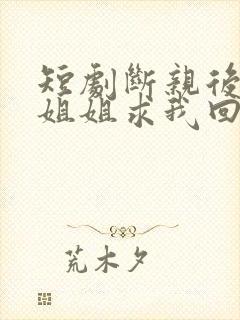 短劇斷親後
姐姐求我回
荒木夕